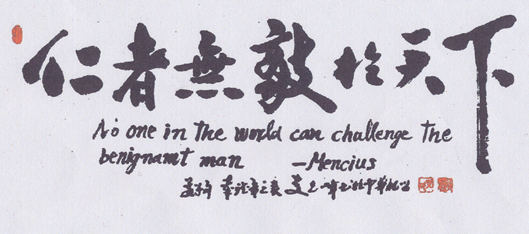 仁者無敵於天下
No one in the world can challenge the
benignamt man —Mencius